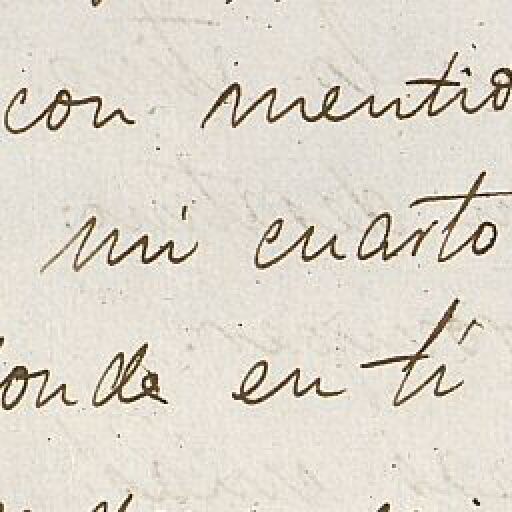 con mentid
mi cuarto
onde en ti